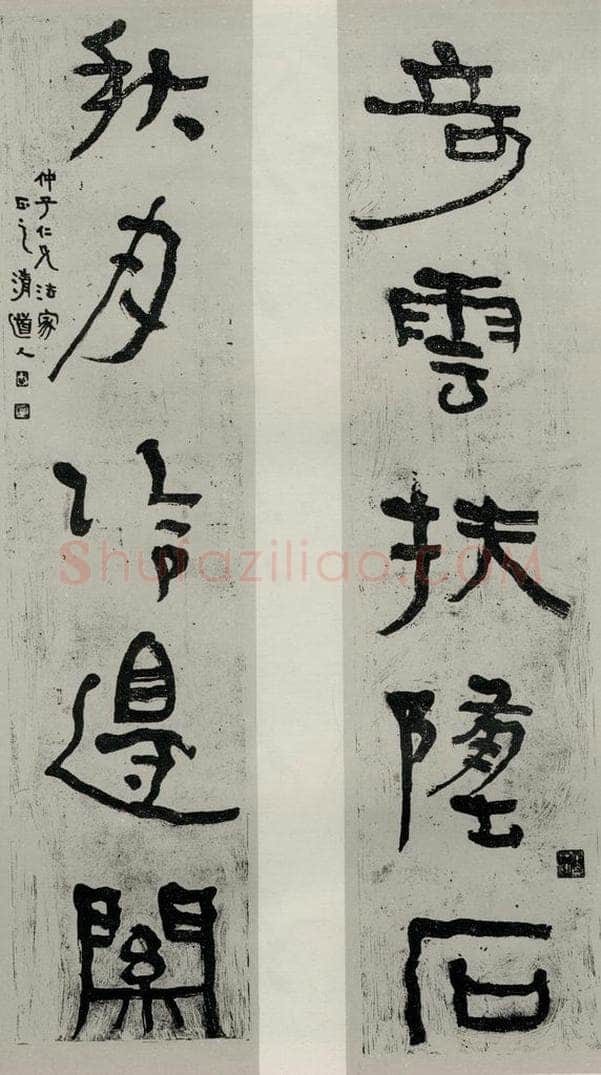 奇雲扶墮石
秋月冷邊關
仲子仁兄法家
正之清道人
Shufaziliao.COM